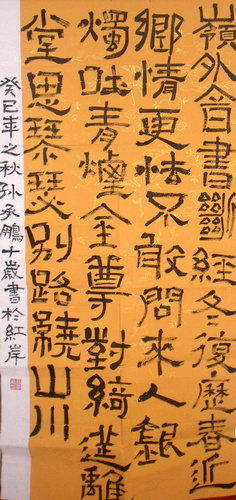 嶺外音書斷經冬復歷春近
鄉情更怯不敢問來人銀
燭吐青煙金尊對綺筵離
堂思琴瑟別路繞山川
癸巳年之秋孫承鵬十歲書於紅岸